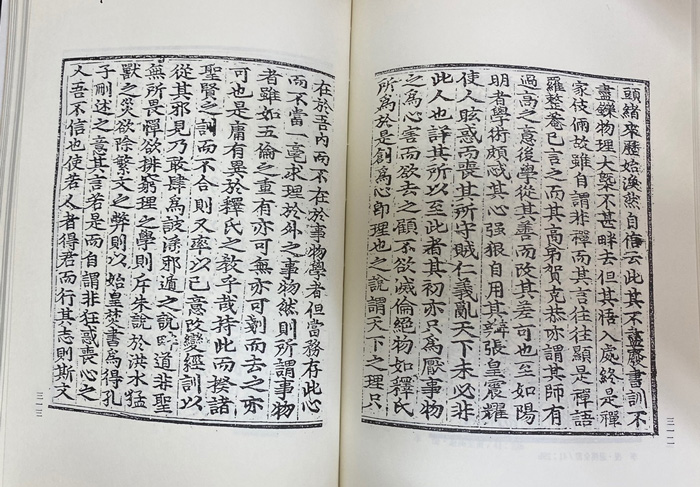 頭緒來歷始渙然自信云此其不盡廢書訓不
盡鑠物理大槩不甚畔去但其悟入處終是禪
家伎倆故雖自謂非禪而其言往往顯是禪語
羅整菴已言之而其高弟賀克恭亦謂其師有
過高之意後學從其善而改其差可也至如陽
明者學術頗忒其心强狠自用其辯張皇震耀
使人眩惑而喪其所守賊仁義亂天下未必非
此人也詳其所以至此者其初亦只爲厭事物
之爲心害而欲去之顧不欲滅倫絶物如釋氏
所爲於是創爲心卽理也之說謂天下之理只
三一二
在於吾內而不在於事物學者但當務存此心
而不當一毫求理於外之事物然則所謂事物
者雖如五倫之重有亦可無亦可剗而去之亦
可也是庸有異於釋氏之敎乎哉持此而揆諸
聖賢之訓而不合則又率以己意改變經訓以
從其邪見乃敢肆爲詖淫邪遁之說畔道非聖
無所畏憚欲排窮理之學則斥朱說於洪水猛
獸之災欲除繁文之弊則以始皇焚書爲得孔
子刪述之意其言若是而自謂非狂惑喪心之
人吾不信也使若人者得君而行其志則斯文
三一三